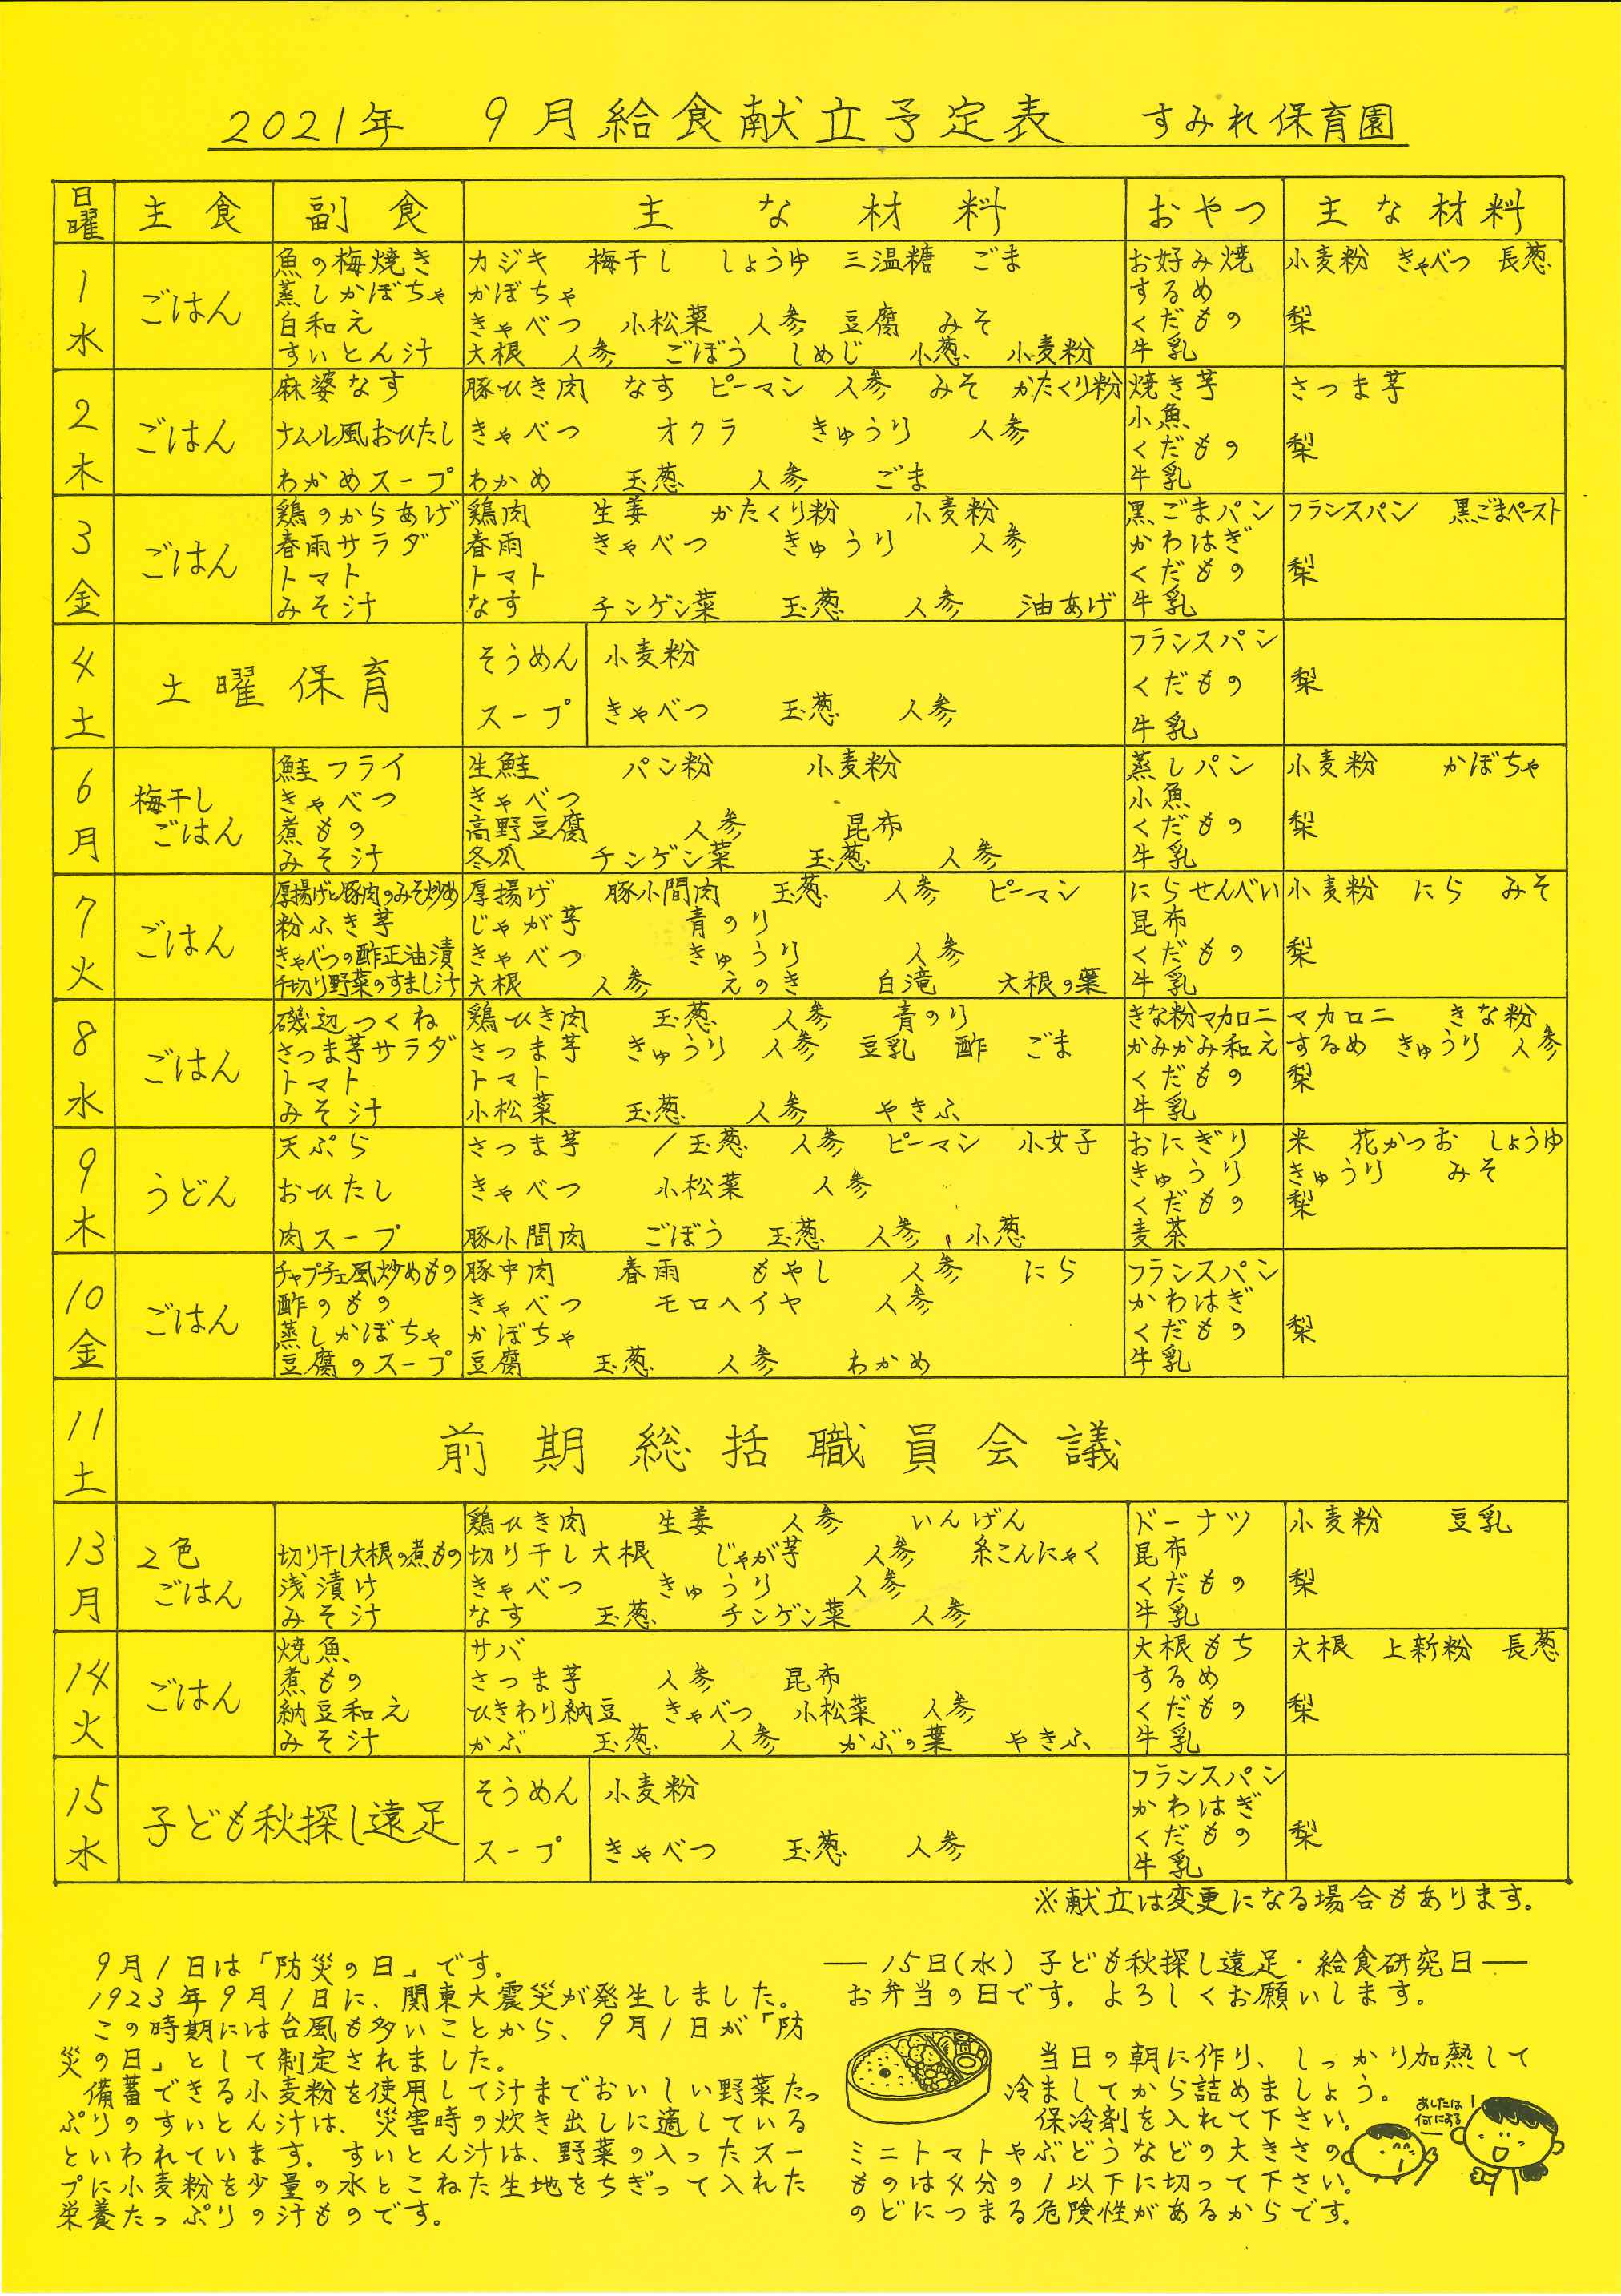 2021年 9月給食献立予定表 すみれ保育園
日曜 主食 副食 主な材料 おやつ 主な材料
1 水 ごはん
魚の梅焼き カジキ 梅干し しょうゆ 三温糖 ごま お好み焼 小麦粉 きゃべつ 長葱
蒸しかぼちゃ かぼちゃ するめ
白和え きゃべつ 小松菜 人参 豆腐 みそ くだもの 梨
すいとん汁 大根 人参 ごぼう しめじ 小葱 小麦粉 牛乳
2 木 ごはん
麻婆なす 豚ひき肉 なす ピーマン 人参 みそ かたくり粉 焼き芋 さつま芋
小魚
ナムル風おひたし きゃべつ オクラ きゅうり 人参 くだもの 梨
わかめスープ わかめ 玉葱 人参 ごま 牛乳
3 金 ごはん
鶏のからあげ 鶏肉 生姜 かたくり粉 小麦粉 黒ごまパン フランスパン 黒ごまペースト
春雨サラダ 春雨 きゃべつ きゅうり 人参 かわはぎ
トマト トマト くだもの 梨
みそ汁 なす チンゲン菜 玉葱 人参 油あげ 牛乳
4 土 土曜保育
そうめん 小麦粉 フランスパン
くだもの 梨
スープ きゃべつ 玉葱 人参 牛乳
6 月 梅干しごはん
鮭フライ 生鮭 パン粉 小麦粉 蒸しパン 小麦粉 かぼちゃ
きゃべつ きゃべつ 小魚
煮もの 高野豆腐 人参 昆布 くだもの 梨
みそ汁 冬瓜 チンゲン菜 玉葱 人参 牛乳
7 火 ごはん
厚揚げと豚肉のみそ炒め 厚揚げ 豚小間肉 玉葱 人参 ピーマン にらせんべい 小麦粉 にら みそ
粉ふき芋 じゃが芋 青のり 昆布
きゃべつの酢正油漬 きゃべつ きゅうり 人参 くだもの 梨
千切り野菜のすまし汁 大根 人参 えのき 白滝 大根の葉 牛乳
8 水 ごはん
磯辺つくね 鶏ひき肉 玉葱 人参 青のり きな粉マカロニ マカロニ きな粉
さつま芋サラダ さつま芋 きゅうり 人参 豆乳 酢 ごま かみかみ和え するめ きゅうり 人参
トマト トマト くだもの 梨
みそ汁 小松菜 玉葱 人参 やきふ 牛乳
9 木 うどん
天ぷら さつま芋 / 玉葱 人参 ピーマン 小女子 おにぎり 米 花かつお しょうゆ
きゅうり きゅうり みそ
おひたし きゃべつ 小松菜 人参 くだもの 梨
肉スープ 豚小間肉 ごぼう 玉葱 人参 小葱 麦茶
10 金 ごはん
チャプチェ風炒めもの 豚中肉 春雨 もやし 人参 にら フランスパン
酢のもの きゃべつ モロヘイヤ 人参 かわはぎ
蒸しかぼちゃ かぼちゃ くだもの 梨
豆腐のスープ 豆腐 玉葱 人参 わかめ 牛乳
11 土 前期総括職員会議
13 月 2色ごはん
鶏ひき肉 生姜 人参 いんげん ドーナツ 小麦粉 豆乳
切り干し大根の煮もの 切り干し大根 じゃが芋 人参 糸こんにゃく 昆布
浅漬け きゃべつ きゅうり 人参 くだもの 梨
みそ汁 なす 玉葱 チンゲン菜 人参 牛乳
14 火 ごはん
焼魚 サバ 大根もち 大根 上新粉 長葱
煮もの さつま芋 人参 昆布 するめ
納豆和え ひきわり納豆 きゃべつ 小松菜 人参 くだもの 梨
みそ汁 かぶ 玉葱 人参 かぶの葉 やきふ 牛乳
15 水 子ども秋探し遠足
そうめん 小麦粉 フランスパン
かわはぎ
スープ きゃべつ 玉葱 人参 くだもの 梨
牛乳
※献立は変更になる場合もあります。
9月1日は「防災の日」です。
1923年9月1日に、関東大震災が発生しました。
この時期には台風も多いことから、9月1日が「防
災の日」として制定されました。
備蓄できる小麦粉を使用して汁までおいしい野菜たっ
ぷりのすいとん汁は、災害時の炊き出しに適している
といわれています。すいとん汁は、野菜の入ったスー
プに小麦粉を少量の水とこねた生地をちぎって入れた
栄養たっぷりの汁ものです。
―15日(水) 子ども秋探し遠足・給食研究日―
お弁当の日です。よろしくお願いします。
当日の朝に作り、しっかり加熱して
冷ましてから詰めましょう。
保冷剤を入れて下さい。
ミニトマトやぶどうなどの大きさの
ものは4分の1以下に切って下さい。
のどにつまる危険性があるからです。
あしたは
何にする